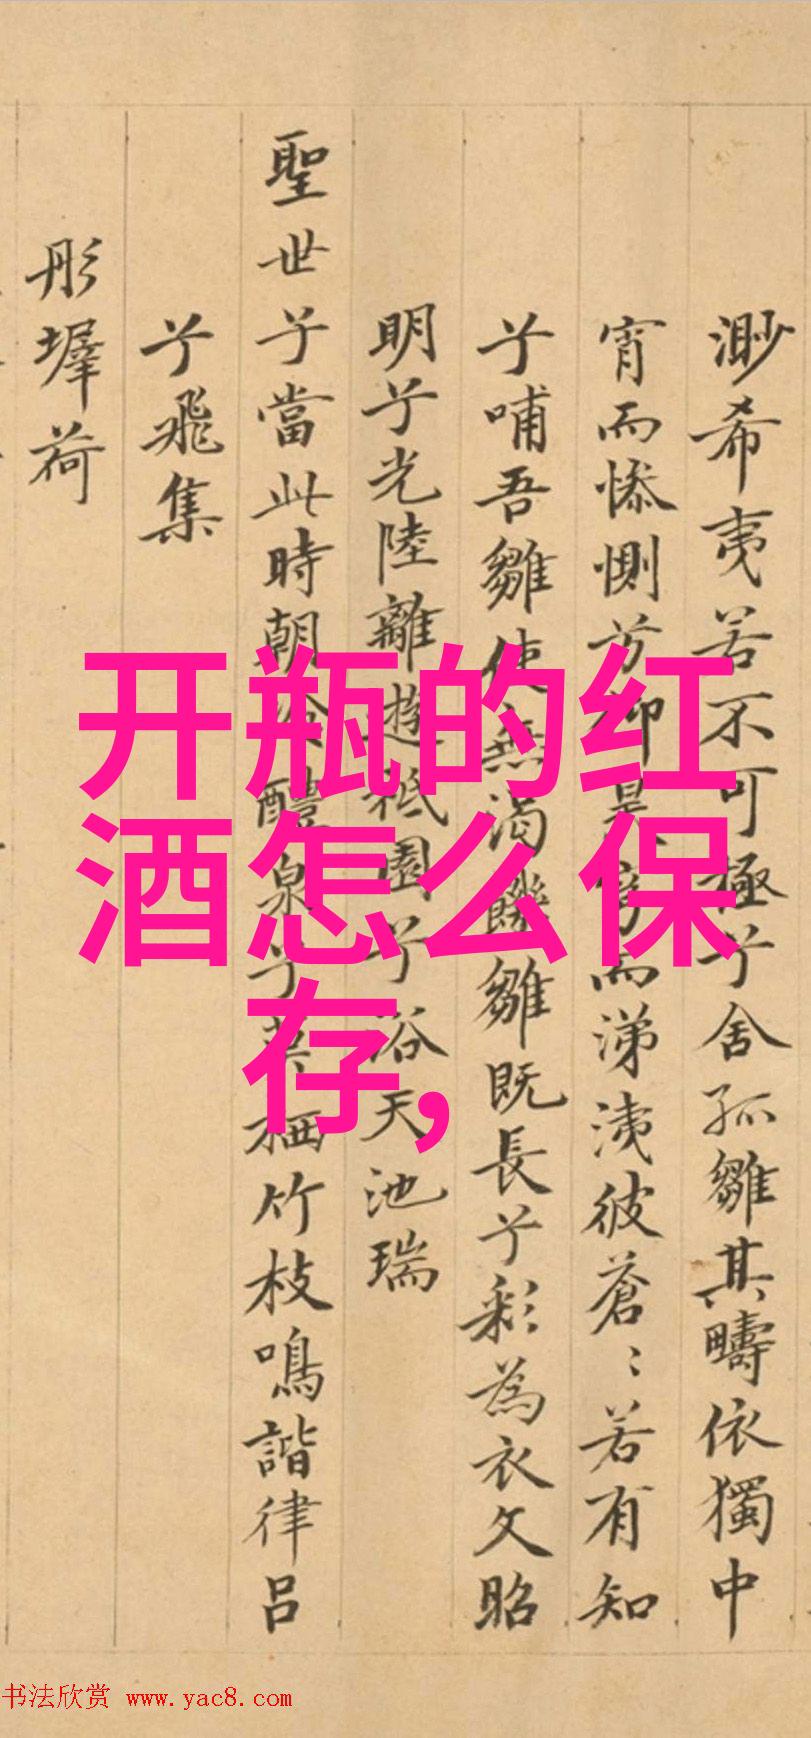 渺希夷若不可極兮舍孤雛其疇依獨中
宵而慘惻芳柳是而涕洟彼蒼〻若有知
兮哺吾雛使無渴饑雛既長兮彩為衣文昭
明兮光陸離遊祗園兮浴天池瑞
聖世兮當此時朝泉兮栖竹枝鳴諧律呂
兮飛集
彤墀荷
开瓶的红
酒怎么保
存,
书法欣赏 www.yac8.com